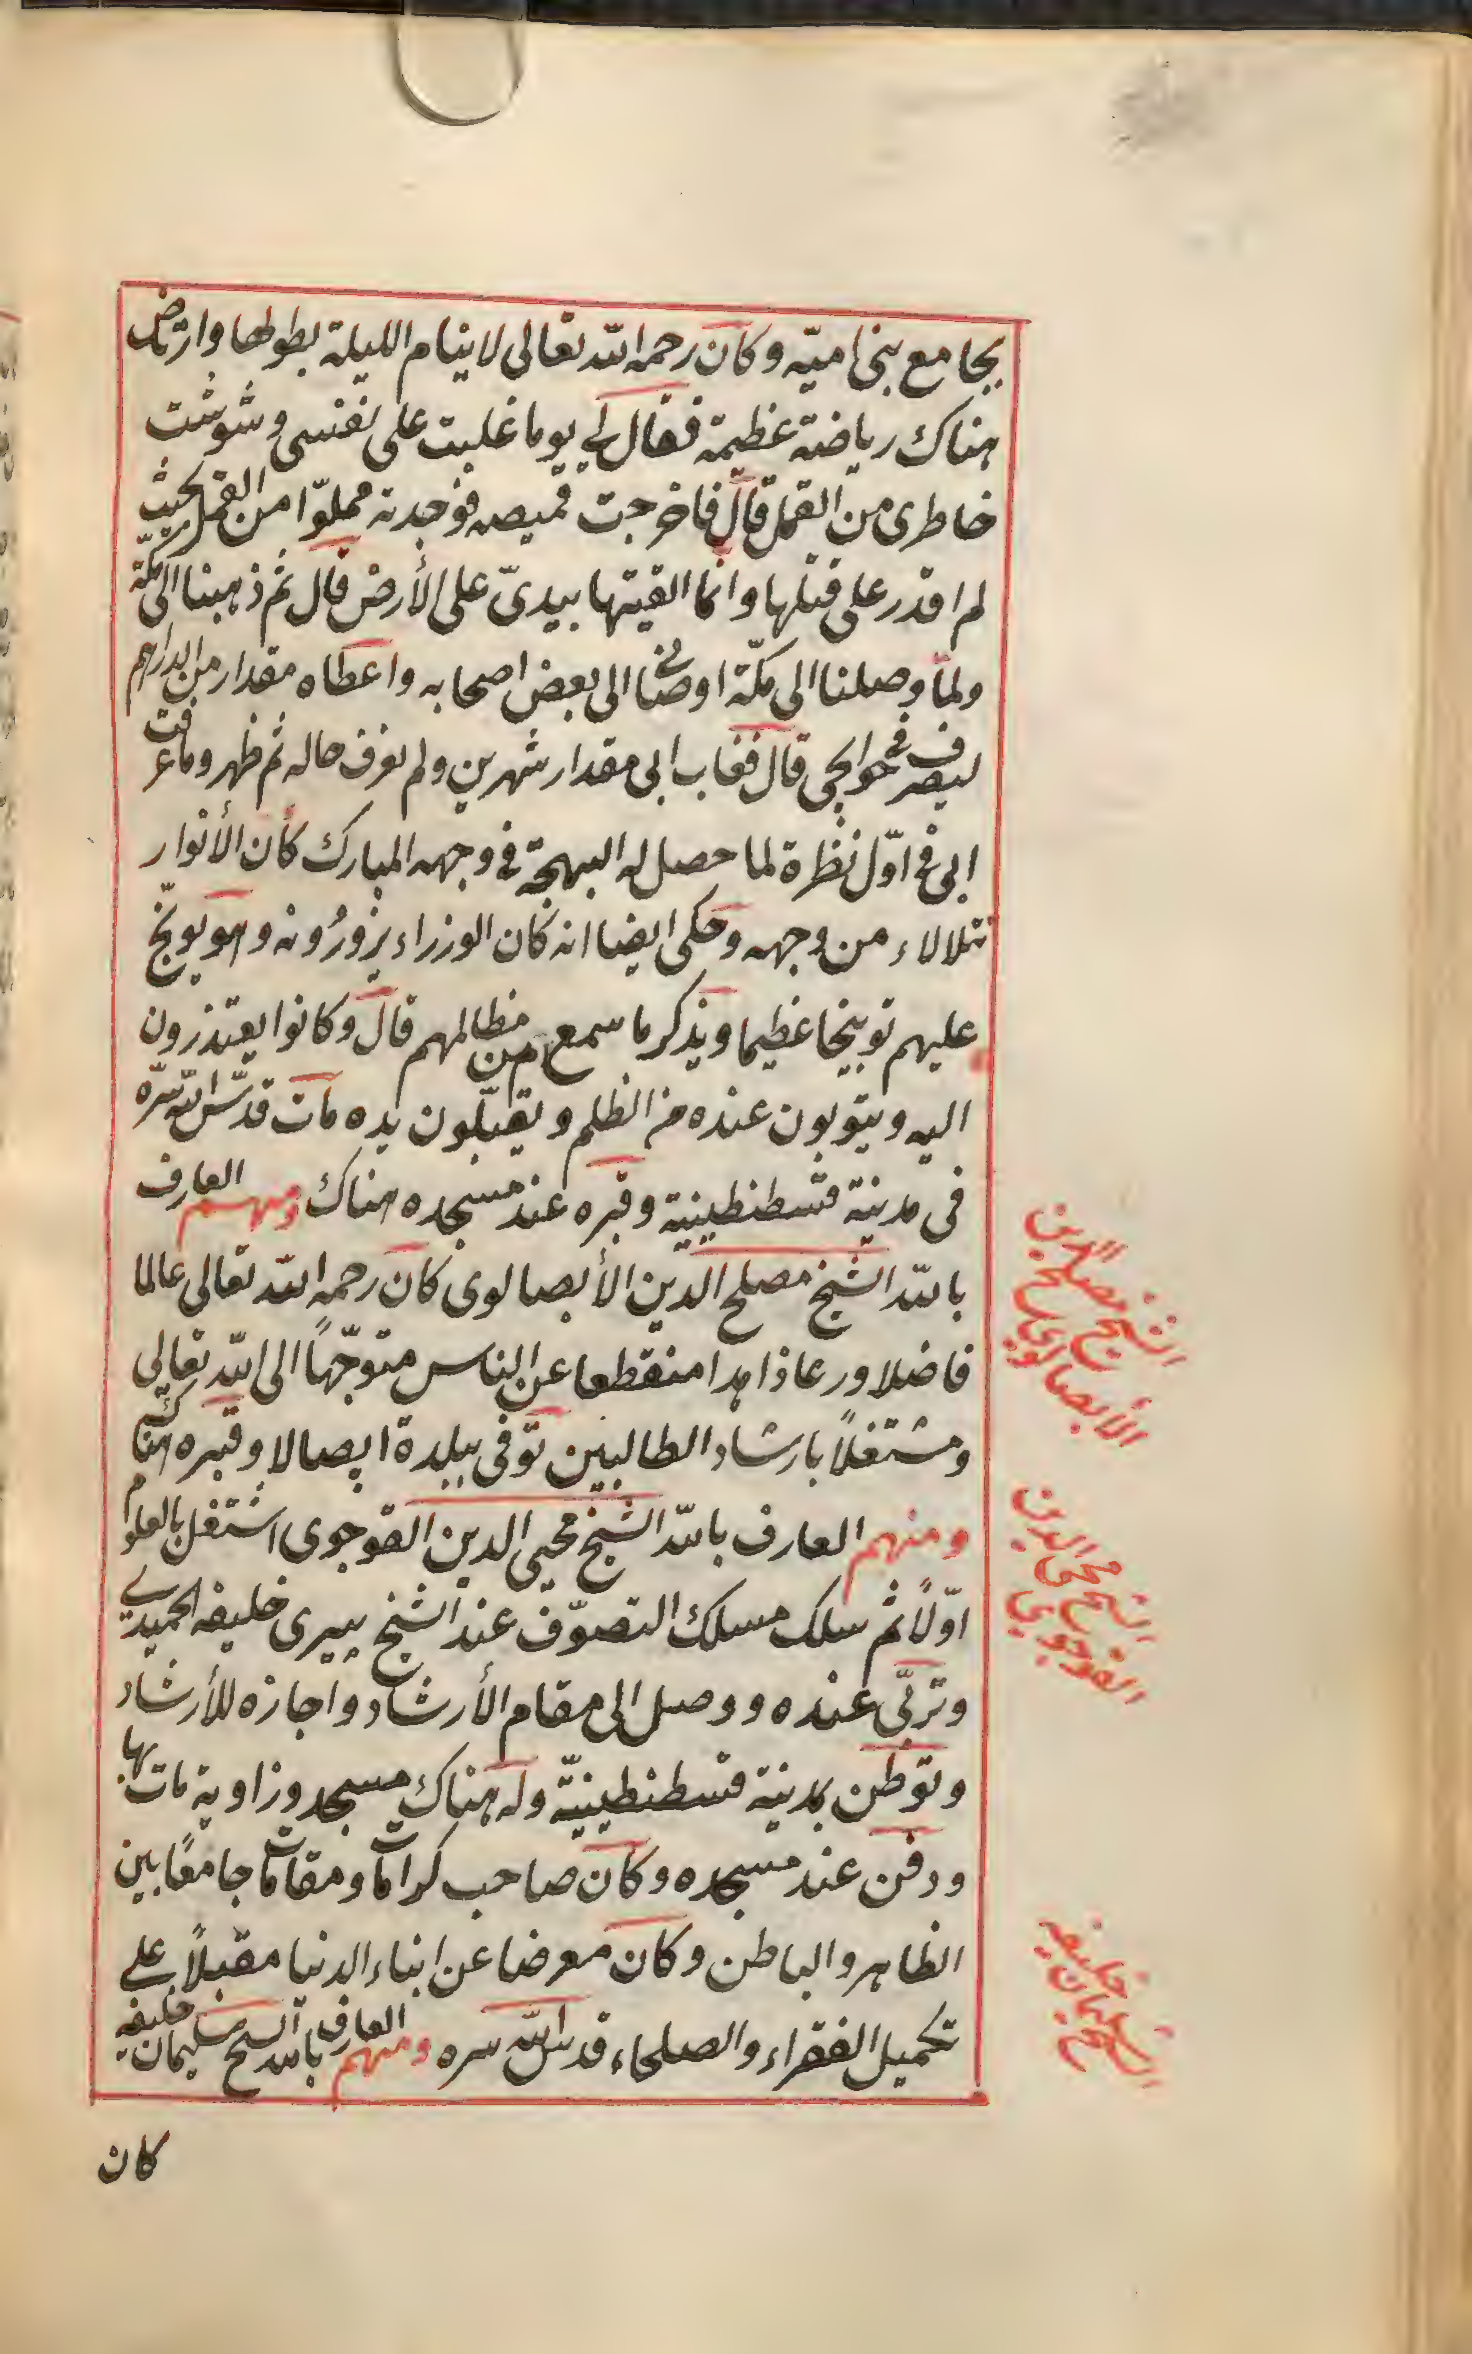 بجامع بنى اميّه وكان رحمه الله تعالى لا ينام الليلة بطولها وارتاض
هناك رياضة عظيمة فقال لي يوما غلبت على نفسى وشوشت
خاطرى من القمل قال فاخرجت قميصه فوجدته مملوّا من القمل بحيث
لم اقدر على قتلها وانما القيتها بيدىّ على الأرض قال ثم ذهبنا الى مكّة
ولمّا وصلنا الى مكّة اوصانى الى بعض اصحابه واعطاه مقدار من الدراهم
ليصرف فى حوايجى قال فغاب ابى مقدار شهرين ولم نعرف حاله ثم ظهر وما عرفت
ابى فى اوّل نظرة لما حصل له البهجة فى وجهه المبارك كأن الأنوار
تتلالاء من وجهه وحكى ايضا انه كان الوزراء يزورونه وهو يوبّخ
عليهم توبيخا عظيما ويذكر ما سمع من مظالمهم قال وكانوا يعتذرون
اليه ويتوبون عنده من الظلم ويقبّلون يده مات قدّس الله سرّه
فى مدينة قسطنطينية وقبره عند مسجده هناك ومنهم العارف
بالله الشيخ مصلح الدين الأبصالوى كان رحمه الله تعالى عالما
فاضلا ورعا ذاهدا منقطعا عن الناس متوجّهاً الى الله تعالى
ومشتغلاً بارشاد الطالبين توّفى ببلدة ابصالا وقبره هناك
ومنهم العارف بالله الشيخ محيى الدين القوجوى اشتغل بالعلوم
اوّلاً ثم سلك مسلك التصوّف عند الشيخ پيرى خليفه الحميدى
وتربّى عنده ووصل الى مقام الأرشاد واجازه للأرشاد
وتوطّن بمدينة قسطنطينيّة وله هناك مسجد وزاوية مات بها
ودفن عند مسجده وكان صاحب كرامات ومقامات جامعًا بين
الظاهر والباطن وكان معرضا عن ابناء الدنيا مقبلاً على
تكميل الفقراء والصلحاء قدس الله سره ومنهم العارف بالله الشيخ سليمان خليفه
كان
الشيخ مصلح الدين
الأبصالوى
الشيخ محيى الدين
القوجوى
الشيخ سليمان خليفه